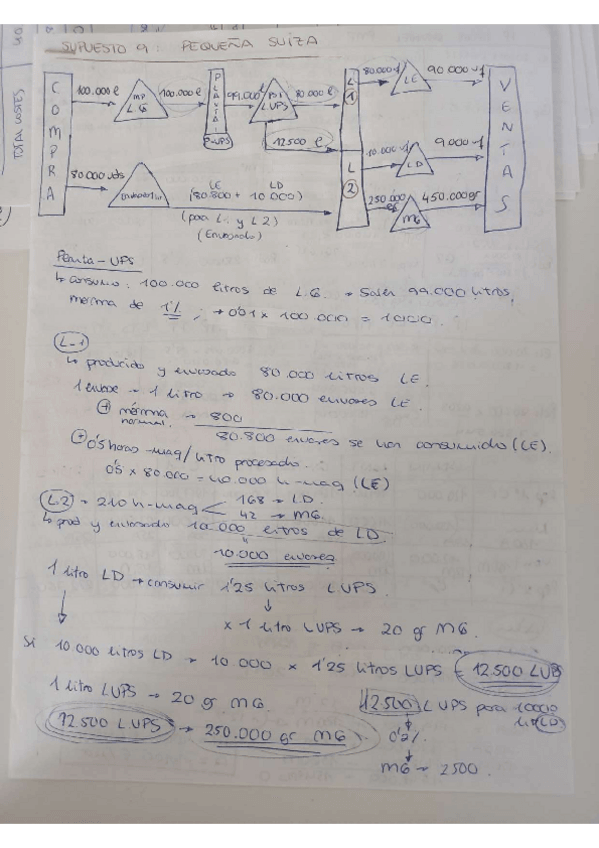 TOTAL COSTES
SUPUESTO 9: PEQUEÑA SUIZA
COMPRA
100.000 l
MP L.G
100.000 l
PLANTA 1
P-UPS
99.000 l
LUPS
80.000 l
12500 l
L 1
L 2
80.000 l
LE
90.000 uf
10.000 uf
LD
9.000 uf
250.000 gr
MG
450.000 gr
VENTAS
80.000 uds
LE LD
(80.800 + 10.000)
(para L1 y L2)
(Envasado)
Planta-UPS
↳ consumo: 100.000 litros de L.G → Salen 99.000 litros,
merma de 1% ; → 0'01 x 100.000 = 1000.
L-1
↳ producido y envasado 80.000 litros LE.
1 envase → 1 litro → 80.000 envases LE.
+ merma normal → 800
80.800 envases se han consumido (LE).
+ 0'5 horas-maq/litro procesado.
0'5 x 80.000 = 40.000 h-maq (LE)
L.2 → 210 h-maq < 168 → LD.
42 → MG.
↳ prod y envasando 10.000 litros de LD
10.000 envases
1 litro LD → consumir 1'25 litros LUPS
x 1 litro LUPS → 20 gr MG.
Si 10.000 litros LD → 10.000 x 1'25 litros LUPS = 12.500 LUPS
1 litro LUPS → 20 gr MG.
12.500 LUPS → 250.000 gr MG
12.500 L UPS para 10000
lit LD
0'2%
MG → 2500.